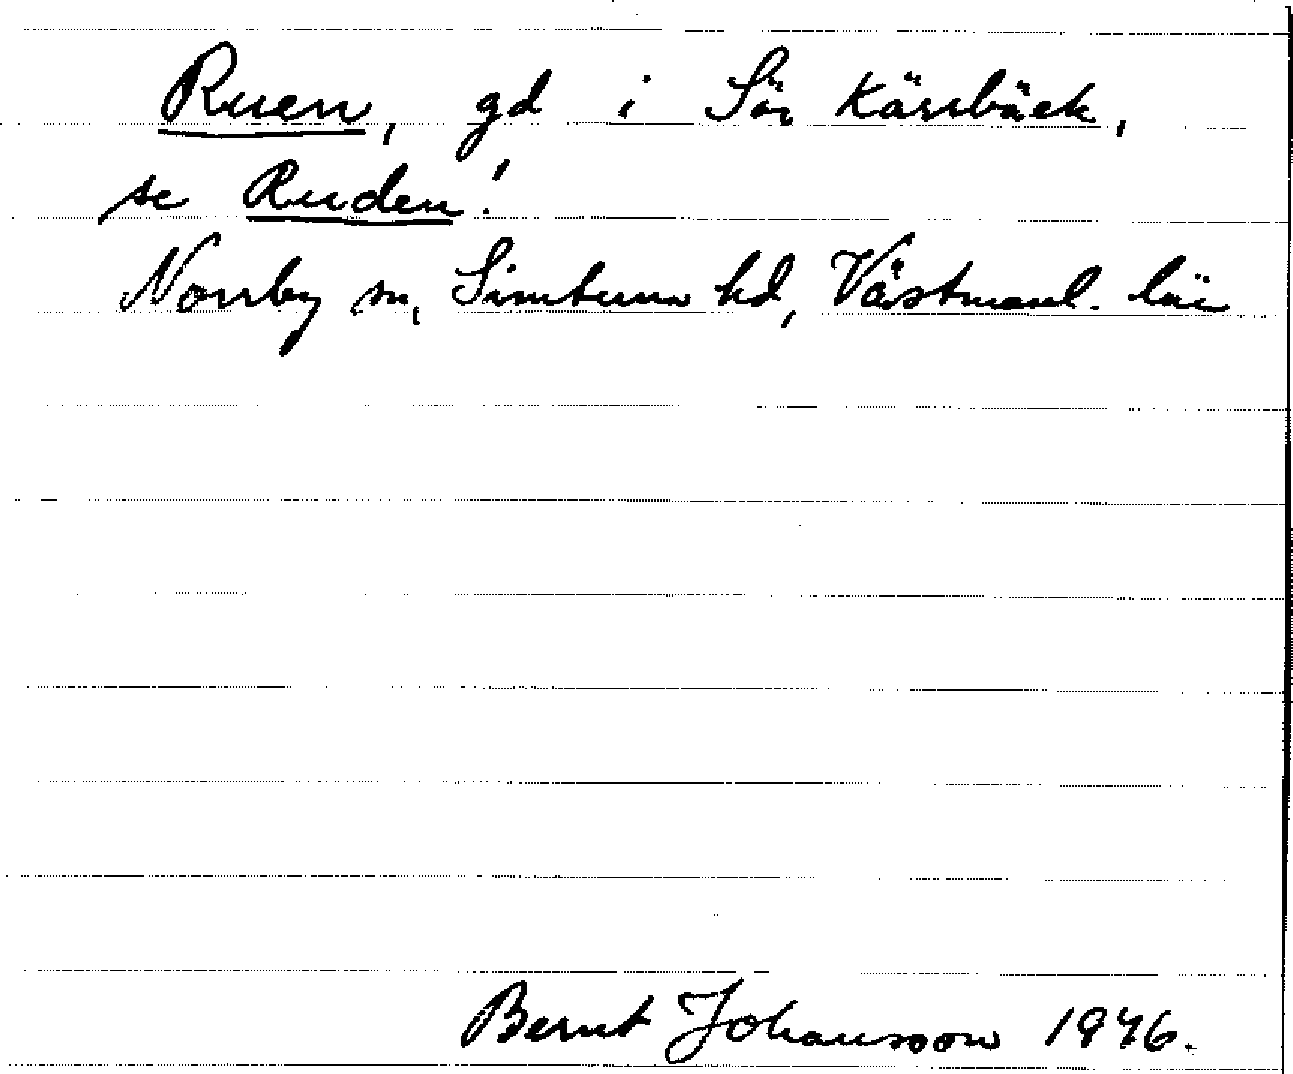 Ruen, gd i Sör Kärrbäck,
se Ruden!
Norrby sn, Simtuna hd, Västmanl. län
Bernt Johansson 1946.